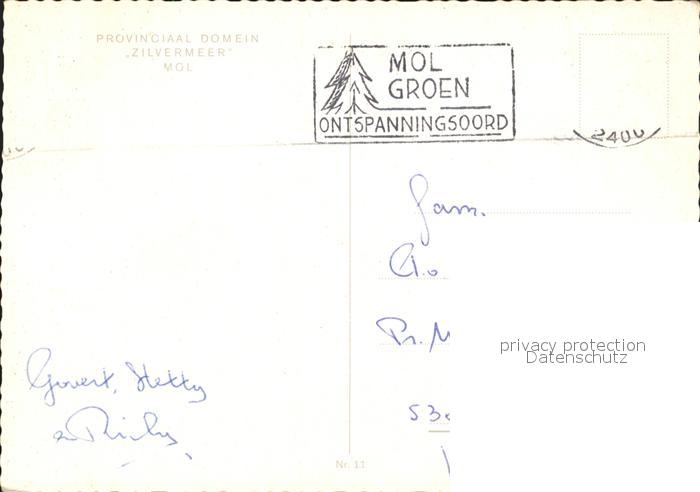 PROVINCIAAL DOMEIN
„ZILVERMEER"
MOL
MOL
GROEN
ONTSPANNINGSOORD
2400
Fam.
Pr. M
privacy protection
Datenschutz
Govert, Hetty
53
Nr. 11